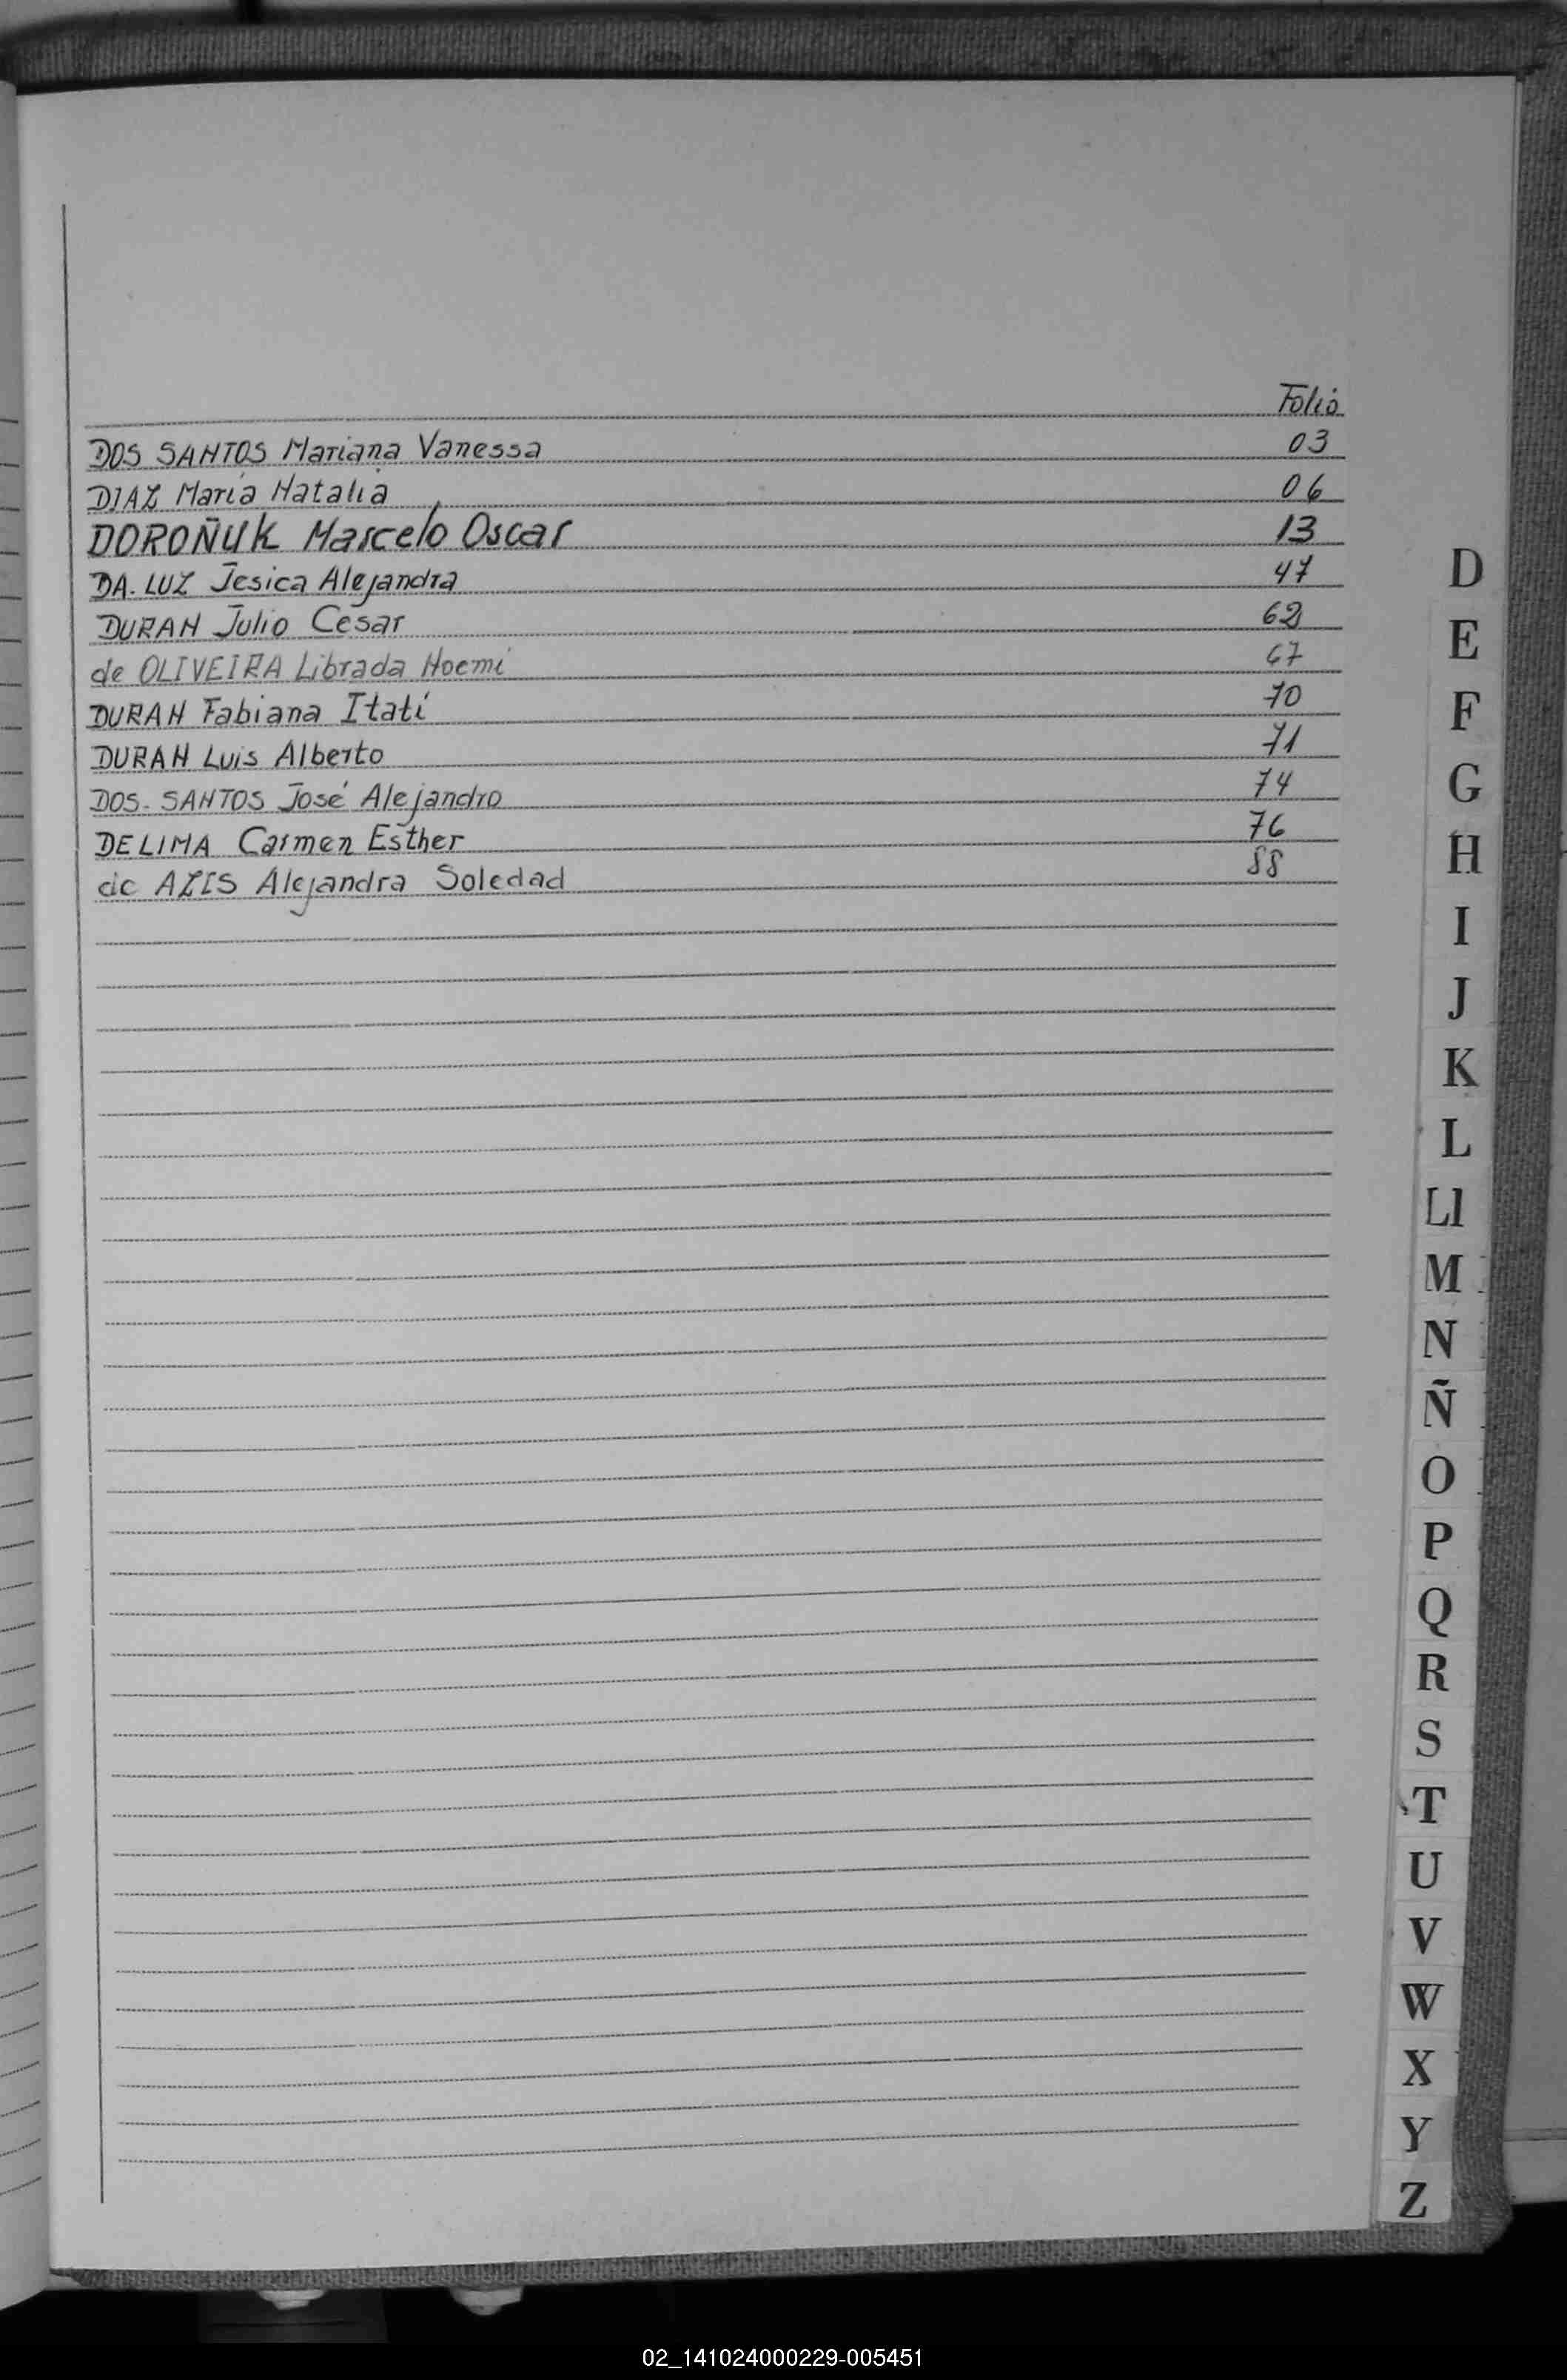 Folio
DOS SANTOS Mariana Vanessa 03
DIAZ María Natalia 06
DOROÑUK Marcelo Oscar 13
DA. LUZ Jesica Alejandra 47
DURAN Julio Cesar 62
de OLIVEIRA Librada Noemí 67
DURAN Fabiana Itatí 70
DURAN Luis Alberto 71
DOS-SANTOS José Alejandro 74
DELIMA Carmen Esther 76
de Alejandra Soledad 88
D
E
F
G
H
I
J
K
L
Ll
M
N
Ñ
O
P
Q
R
S
T
U
V
W
X
Y
Z
02_141024000229-005451